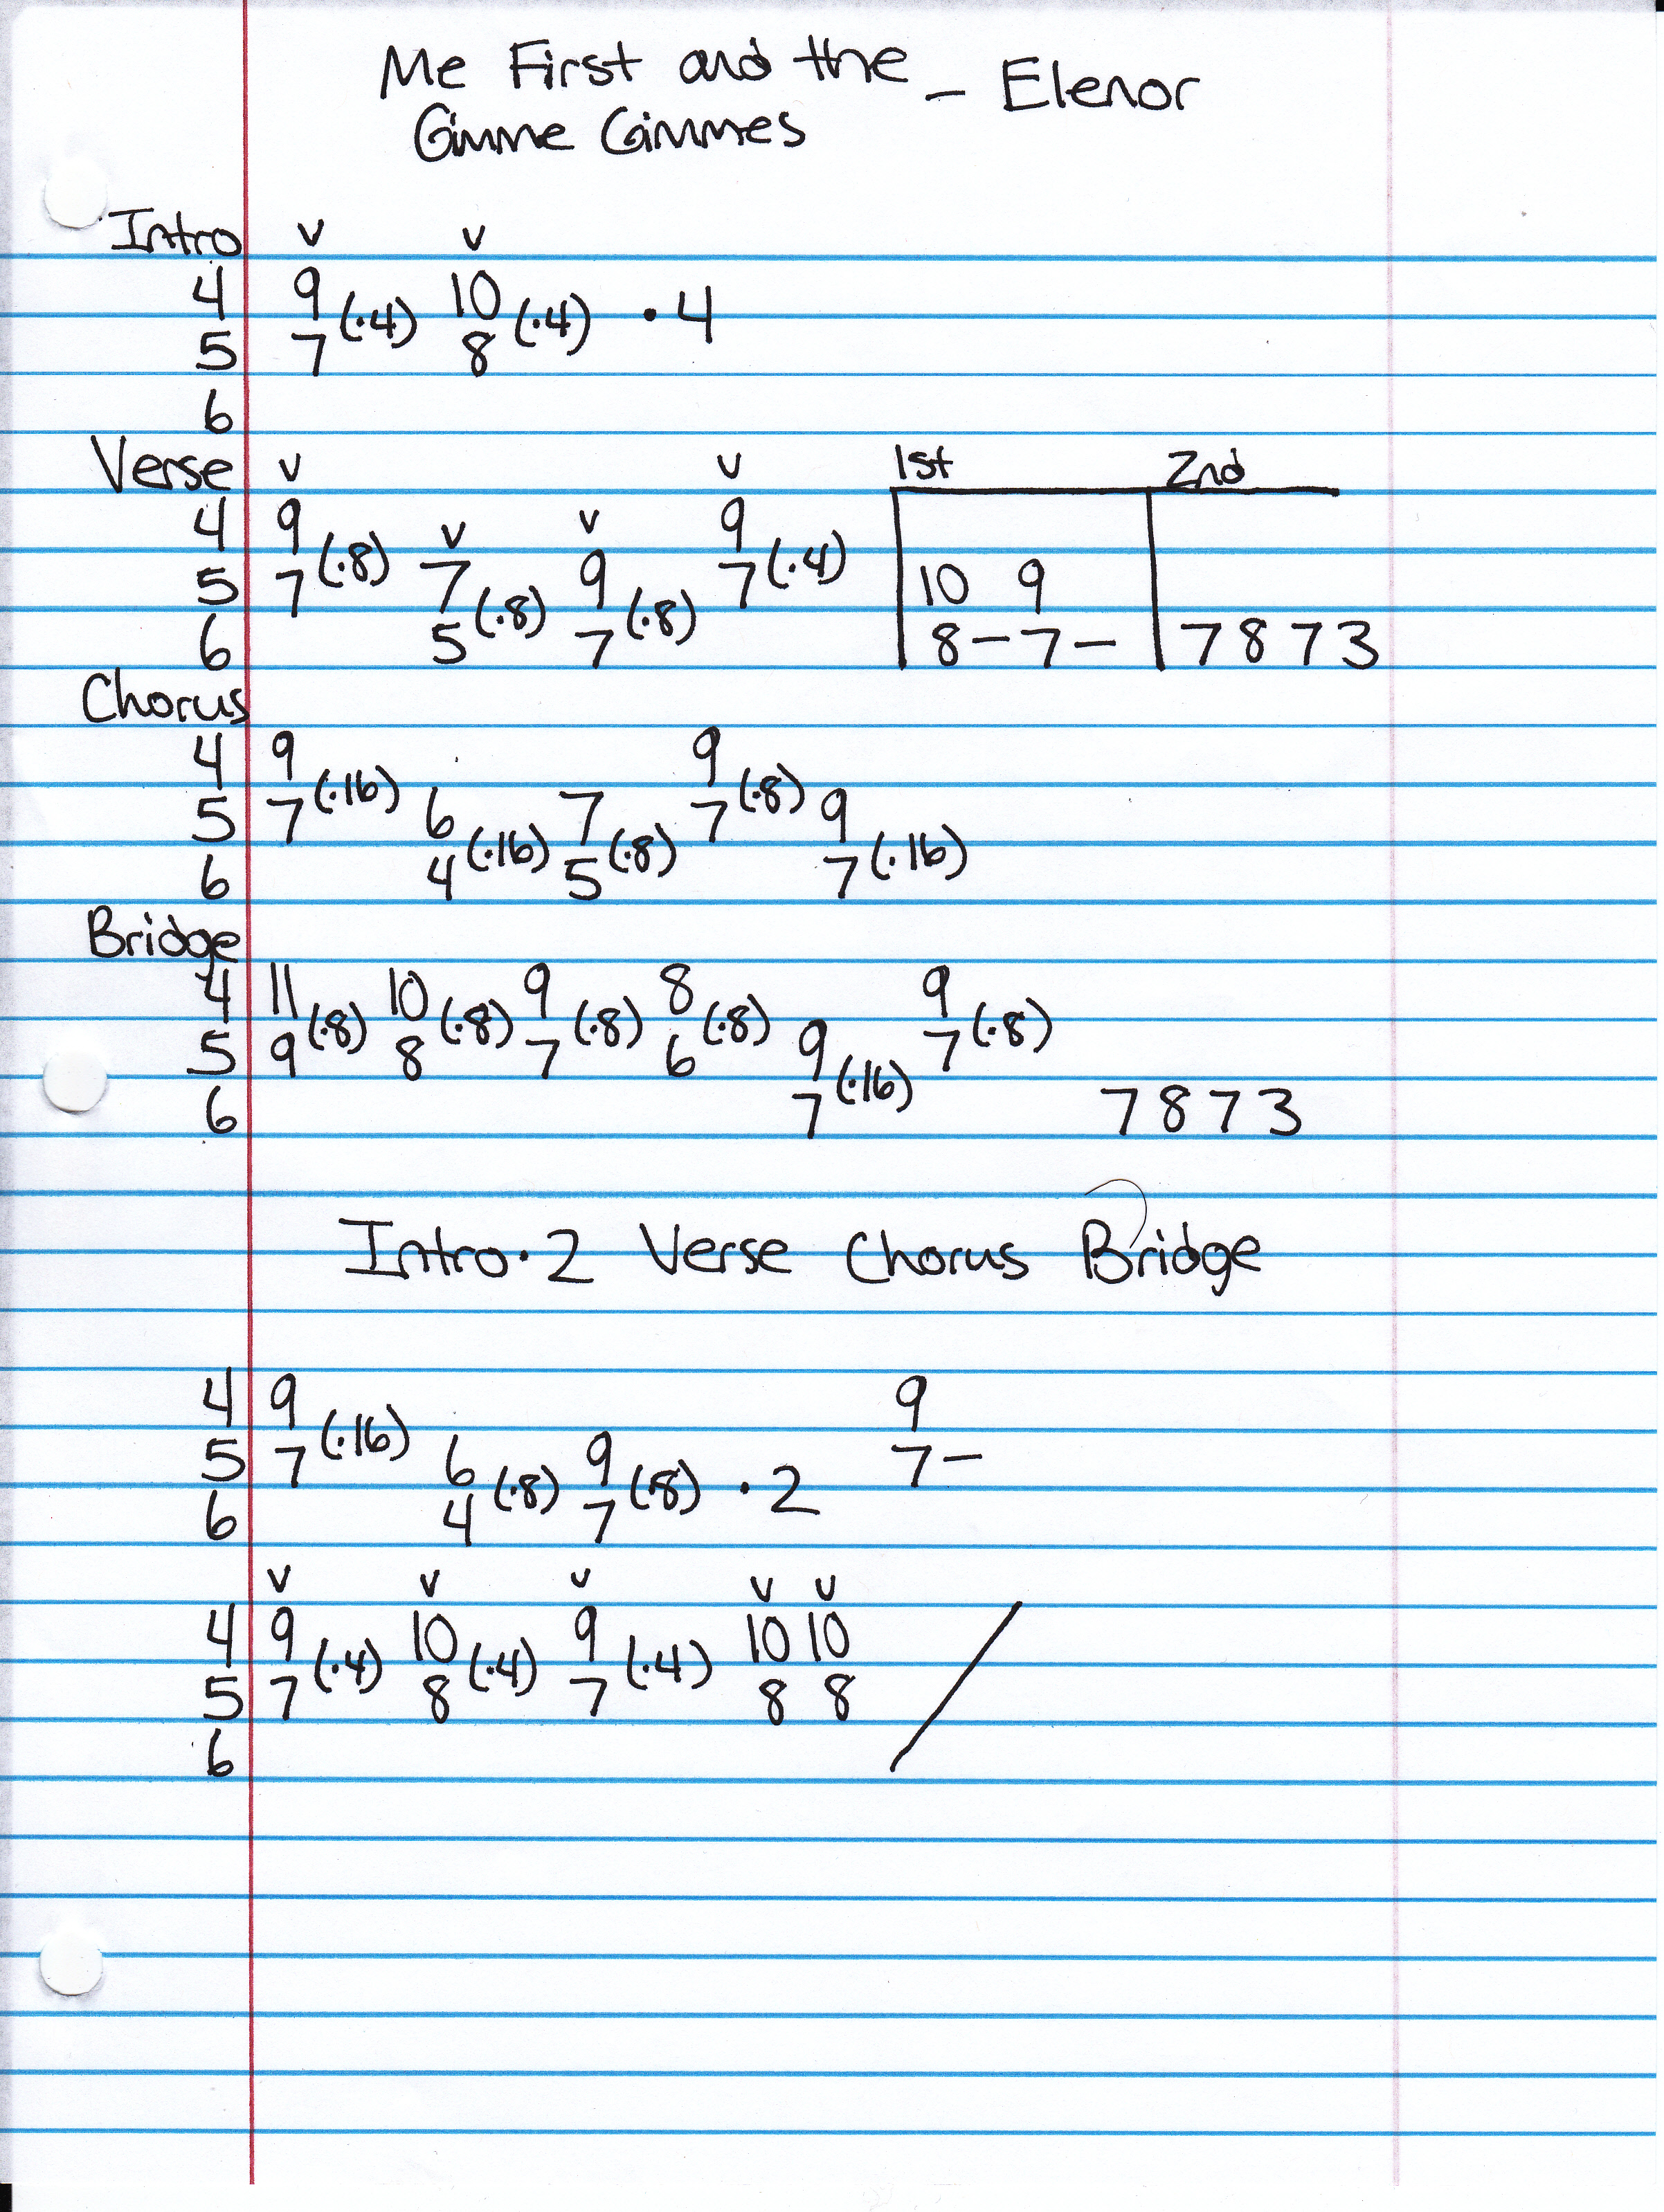 Me First and the - Elenor
Gimme Gimmes
Intro v v
4 9 (·4) 10 (·4) · 4
5 7 8
6
Verse v v 1st 2nd
4 9 v v 9
5 7 (·8) 7 9 7 (·4) 10 9
6 5 (·8) 7 (·8) 8 - 7 - 7 8 7 3
Chorus
4 9 9
5 7 (·16) 6 7 7 (·8) 9
6 4 (·16) 5 (·8) 7 (·16)
Bridge
4 11 10 9 8 9
5 9 (·8) 8 (·8) 7 (·8) 6 (·8) 9 7 (·8)
6 7 (·16) 7 8 7 3
Intro · 2 Verse Chorus Bridge
4 9 9
5 7 (·16) 6 9 7 -
6 4 (·8) 7 (·8) · 2
v v v v v
4 9 10 9 10 10
5 7 (·4) 8 (·4) 7 (·4) 8 8
6